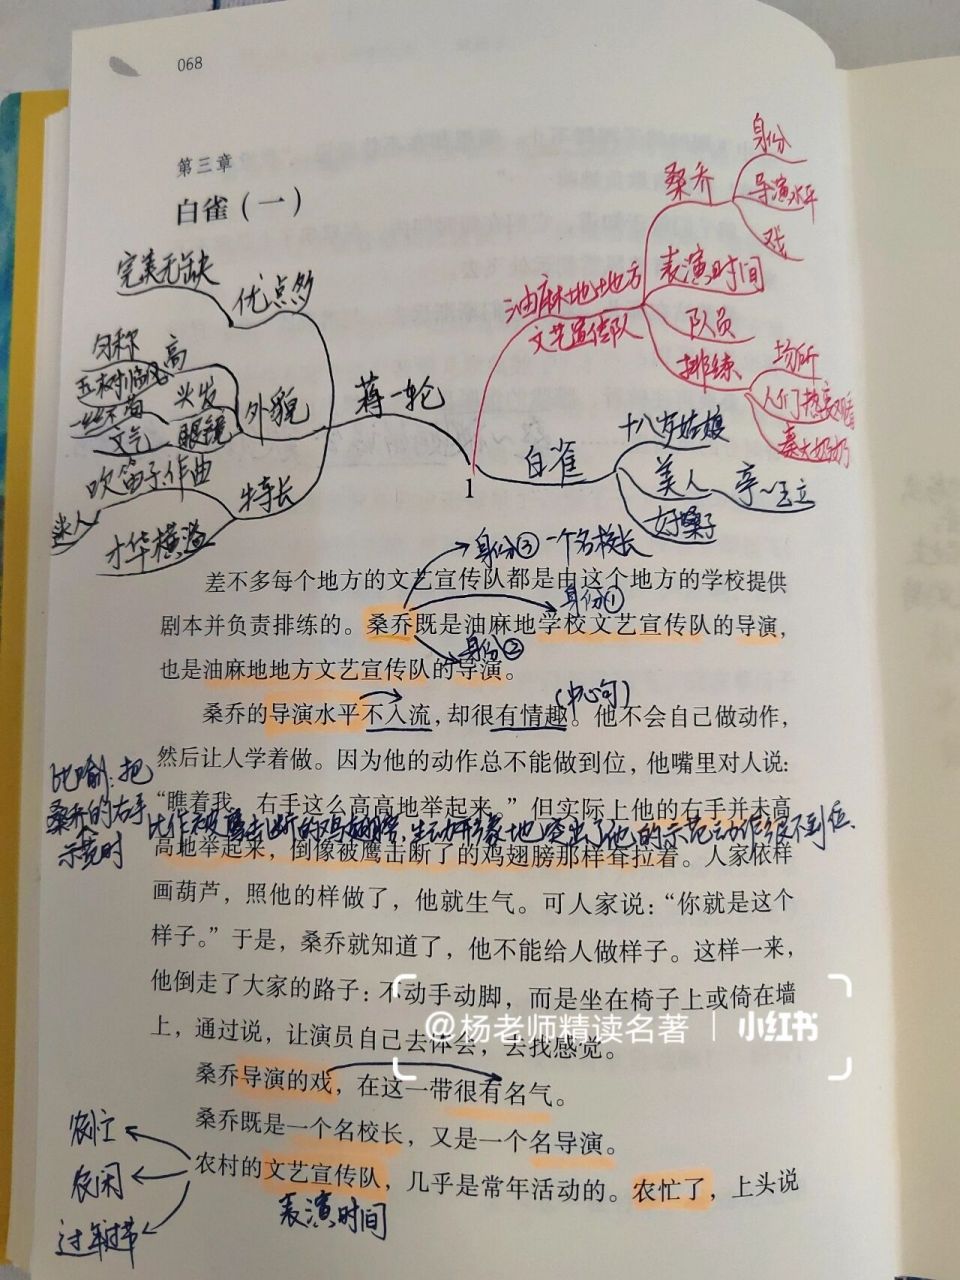 068
第三章
白雀（一）
完美无缺
优点多
匀称
高
玉树临风
一丝不苟
头发
文气
眼镜
外貌
蒋一轮
吹笛子作曲
迷人
特长
才华横溢
1
油麻地地方
文艺宣传队
桑乔
身份
导演水平
戏
表演时间
队员
排练
场所
人们热衷观看
秦大奶奶
白雀
十八岁姑娘
美人
亭~玉立
好嗓子
身份③一个名校长
差不多每个地方的文艺宣传队都是由这个地方的学校提供
身份①
剧本并负责排练的。桑乔既是油麻地学校文艺宣传队的导演，
身份②
也是油麻地地方文艺宣传队的导演。
(中心句)
桑乔的导演水平不入流，却很有情趣。他不会自己做动作，
然后让人学着做。因为他的动作总不能做到位，他嘴里对人说：
“瞧着我，右手这么高高地举起来。”但实际上他的右手并未高
比喻：把
桑乔的右手
示范时
比作被鹰击断的鸡翅膀，生动形象地突出了他的示范动作很不到位
高地举起来，倒像被鹰击断了的鸡翅膀那样耷拉着。人家依样
画葫芦，照他的样做了，他就生气。可人家说：“你就是这个
样子。”于是，桑乔就知道了，他不能给人做样子。这样一来，
他倒走了大家的路子：不动手动脚，而是坐在椅子上或倚在墙
上，通过说，让演员自己去体会，去找感觉。
@杨老师精读名著 | 小红书
桑乔导演的戏，在这一带很有名气。
桑乔既是一个名校长，又是一个名导演。
农村的文艺宣传队，几乎是常年活动的。农忙了，上头说
农忙
农闲
过年过节
表演时间